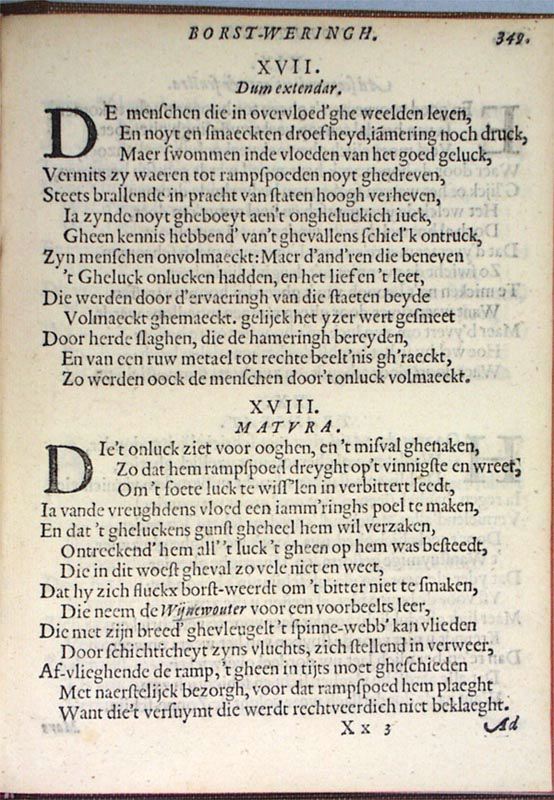 BORST-WERINGH. 349.
XVII.
Dum extendar.
DE menschen die in overvloed'ghe weelden leven,
En noyt en smaeckten droefheyd, iāmering noch druck,
Maer swommen inde vloeden van het goed geluck,
Vermits zy waeren tot rampspoeden noyt ghedreven,
Steets brallende in pracht van staten hoogh verheven,
Ia zynde noyt gheboeyt aen't ongheluckich iuck,
Gheen kennis hebbend' van't ghevallens schiel'k ontruck,
Zyn menschen onvolmaeckt: Maer d'and'ren die beneven
't Gheluck onlucken hadden, en het lief en 't leet,
Die werden door d'ervaeringh van die staeten beyde
Volmaeckt ghemaeckt. gelijck het yzer wert gesmeet
Door herde slaghen, die de hameringh bereyden,
En van een ruw metael tot rechte beelt'nis gh'raeckt,
Zo werden oock de menschen door't onluck volmaeckt.
XVIII.
MATVRA.
DIe't onluck ziet voor ooghen, en 't misval ghenaken,
Zo dat hem rampspoed dreyght op't vinnigste en wreet,
Om 't soete luck te wiss'len in verbittert leedt,
Ia vande vreughdens vloed een iamm'ringhs poel te maken,
En dat 't gheluckens gunst gheheel hem wil verzaken,
Ontreckend' hem all' 't luck 't gheen op hem was besteedt,
Die in dit woest gheval zo vele niet en weet,
Dat hy zich fluckx borst-weerdt om 't bitter niet te smaken,
Die neem de Wijnewouter voor een voorbeelts leer,
Die met zijn breed' ghevleugelt 't spinne-webb' kan vlieden
Door schichticheyt zyns vluchts, zich stellend in verweer,
Af-vlieghende de ramp, 't gheen in tijts moet gheschieden
Met naerstelijck bezorgh, voor dat rampspoed hem plaeght
Want die't versuymt die werdt rechtveerdich niet beklaeght.
Xx 3 Ad